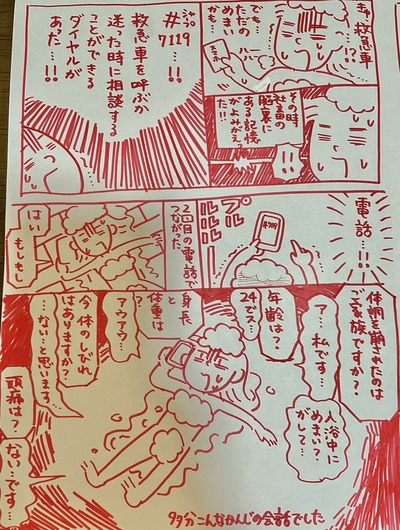 きゅ、救急車
…!?
でも…
ただの
めまい
かも…
ハァ
ハァ
その時
社畜の
脳裏に
ある記憶
がよみがえっ
た!!
シャープ
#7119
…!!
救急車を呼ぶか
迷った時に相談する
ことができる
ダイヤルが
あった…!!
電話…!!
プルルルル
2回目の電話で
つながった
はい
もしもし
体調を崩されたのは
ご家族ですか?
ア…私です…
入浴中に
めまい?
がして…
年齢は?
24でス…
身長
と
体重は
…?
アウアウ…
今体のしびれ
はありますか?
…ない…と思います…
頭痛は?
ない…です…
多分こんなかんじの会話でした